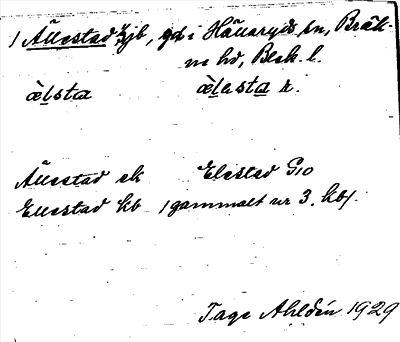 1 Ällestad hjb, gd i Hällaryds sn, Bräk-
ne hd, Blek. l.
ä̀lsta ä̀lesta r.
Ällestad ek Elestad G10
Ellestad kb /gammalt ur 3. kb/.
Tage Ahldén 1929